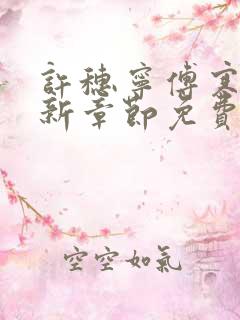 許穗寧傅寒
新章節免費
空空如氣